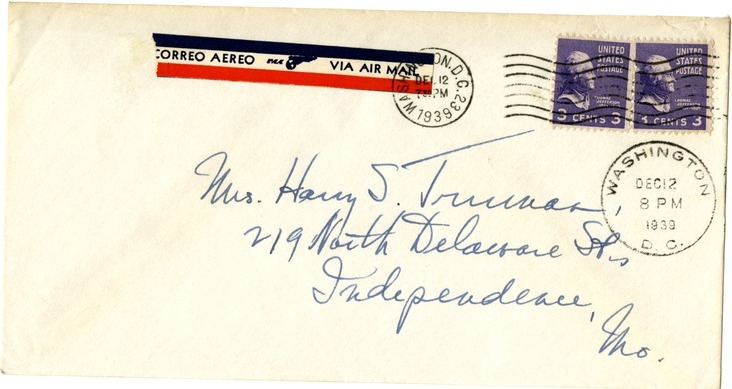 CORREO AEREO VIA AIR MAIL
WASHINGTON, D.C. 23
DEC 12
PM
1939
UNITED STATES POSTAGE
THOMAS JEFFERSON
3 CENTS 3
UNITED STATES POSTAGE
THOMAS JEFFERSON
3 CENTS 3
WASHINGTON
DEC 12
8 PM
1939
D. C.
Mrs. Harry S. Truman,
219 North Delaware St.,
Independence,
Mo.